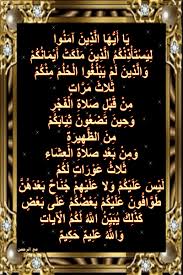 يَا أَيُّهَا الَّذِينَ آمَنُوا
لِيَسْتَأْذِنْكُمُ الَّذِينَ مَلَكَتْ أَيْمَانُكُمْ
وَالَّذِينَ لَمْ يَبْلُغُوا الْحُلُمَ مِنْكُمْ
ثَلَاثَ مَرَّاتٍ
مِنْ قَبْلِ صَلَاةِ الْفَجْرِ
وَحِينَ تَضَعُونَ ثِيَابَكُمْ
مِنَ الظَّهِيرَةِ
وَمِنْ بَعْدِ صَلَاةِ الْعِشَاءِ
ثَلَاثُ عَوْرَاتٍ لَكُمْ
لَيْسَ عَلَيْكُمْ وَلَا عَلَيْهِمْ جُنَاحٌ بَعْدَهُنَّ
طَوَّافُونَ عَلَيْكُمْ بَعْضُكُمْ عَلَى بَعْضٍ
كَذَلِكَ يُبَيِّنُ اللَّهُ لَكُمُ الْآيَاتِ
وَاللَّهُ عَلِيمٌ حَكِيمٌ